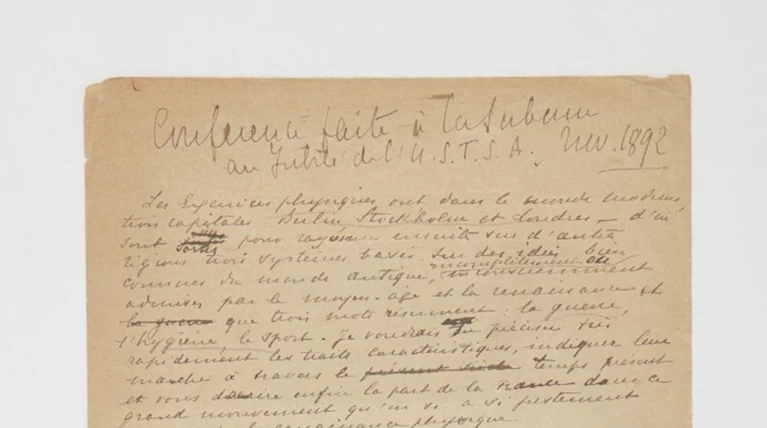 Conférence faite à la Sorbonne
au Jubilé de l'U.S.F.S.A. Nov. 1892
Les Exercices physiques ont dans le monde moderne
trois capitales : Berlin Stockholm et Londres — d'où
sont sortis pour rayonner ensuite sur d'autres
régions trois systèmes basés sur des idées bien
connues du monde antique, incomplètement et inconsciemment
admises par le moyen-âge et la renaissance et
la guerre que trois mots résument : la guerre,
l'hygiène, le sport. Je voudrais en préciser très
rapidement les traits caractéristiques, indiquer leur
marche à travers le présent siècle temps présent
et vous décrire enfin la part de la France dans ce
grand mouvement qu'on a si justement
la renaissance physique